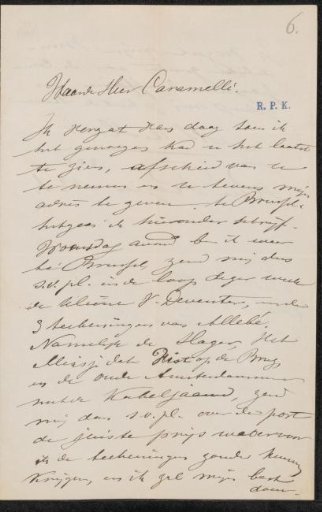 6.
Waarde Heer Caramelli.
R. P. K.
Ik vergat den dag toen ik
het genoegen had u het laatst
te zien, afscheid van u
te nemen en u tevens mijn
adres te geven te Brussel
hetgeen ik hieronder schrijf.
Woensdag avond ben ik weer
te Brussel, zend mij dus
s.v.pl. in de loop dezer week
de kleine v. Deventer, en de
3 teekeningen van Allebé.
Namelijk de Slager, Het
Meisje dat op de Brug
en de oude Amsterdammer
met de Kabeljauw, zend
mij dan s.v.pl. over de post
de juiste prijs waarvoor
ik de teekeningen zoude kunnen
krijgen, en ik zal mijn best
doen